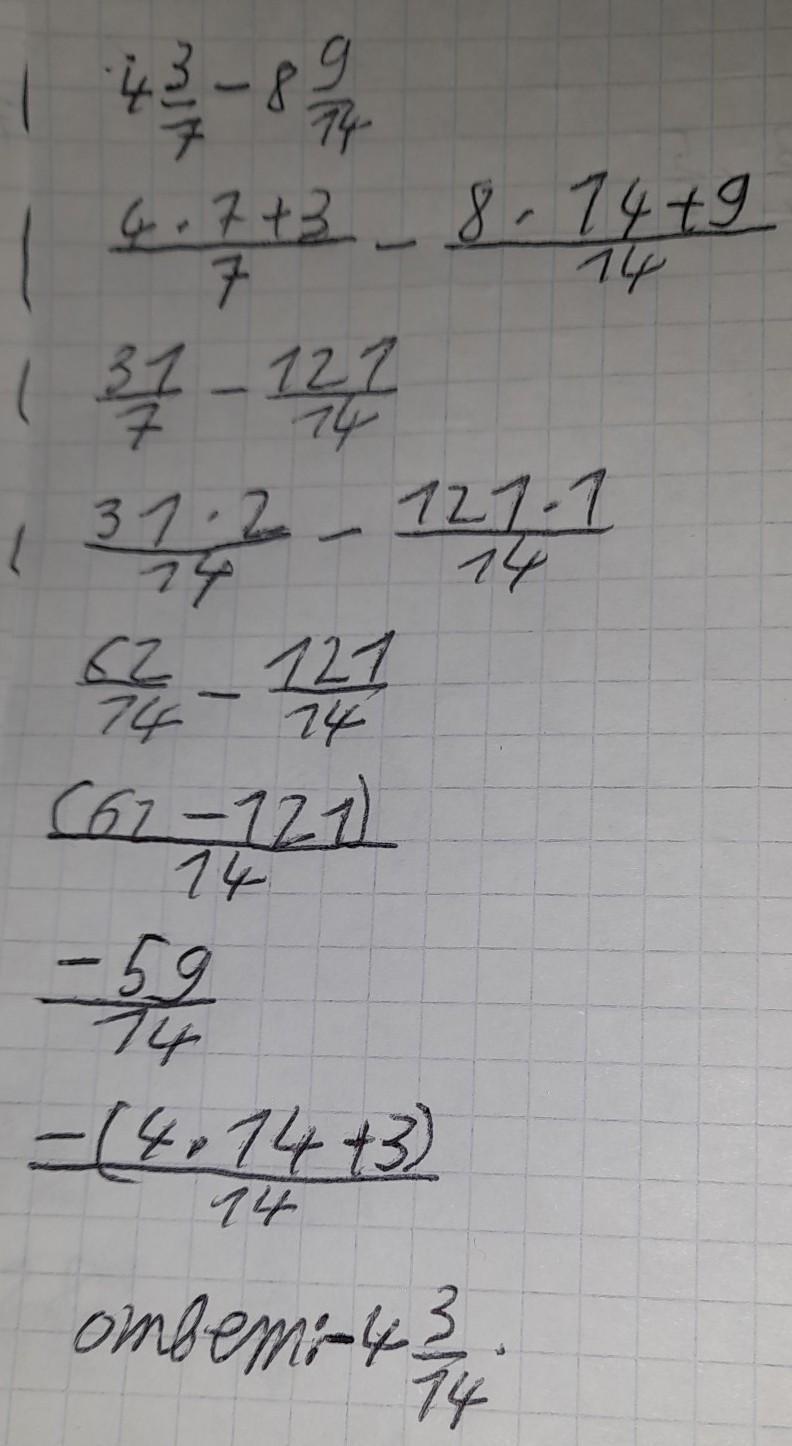 4 3/7 - 8 9/14
(4 · 7 + 3)/7 - (8 · 14 + 9)/14
31/7 - 121/14
(31 · 2)/14 - (121 · 1)/14
62/14 - 121/14
(62 - 121)/14
-59/14
-(4 · 14 + 3)/14
ответ: -4 3/14.